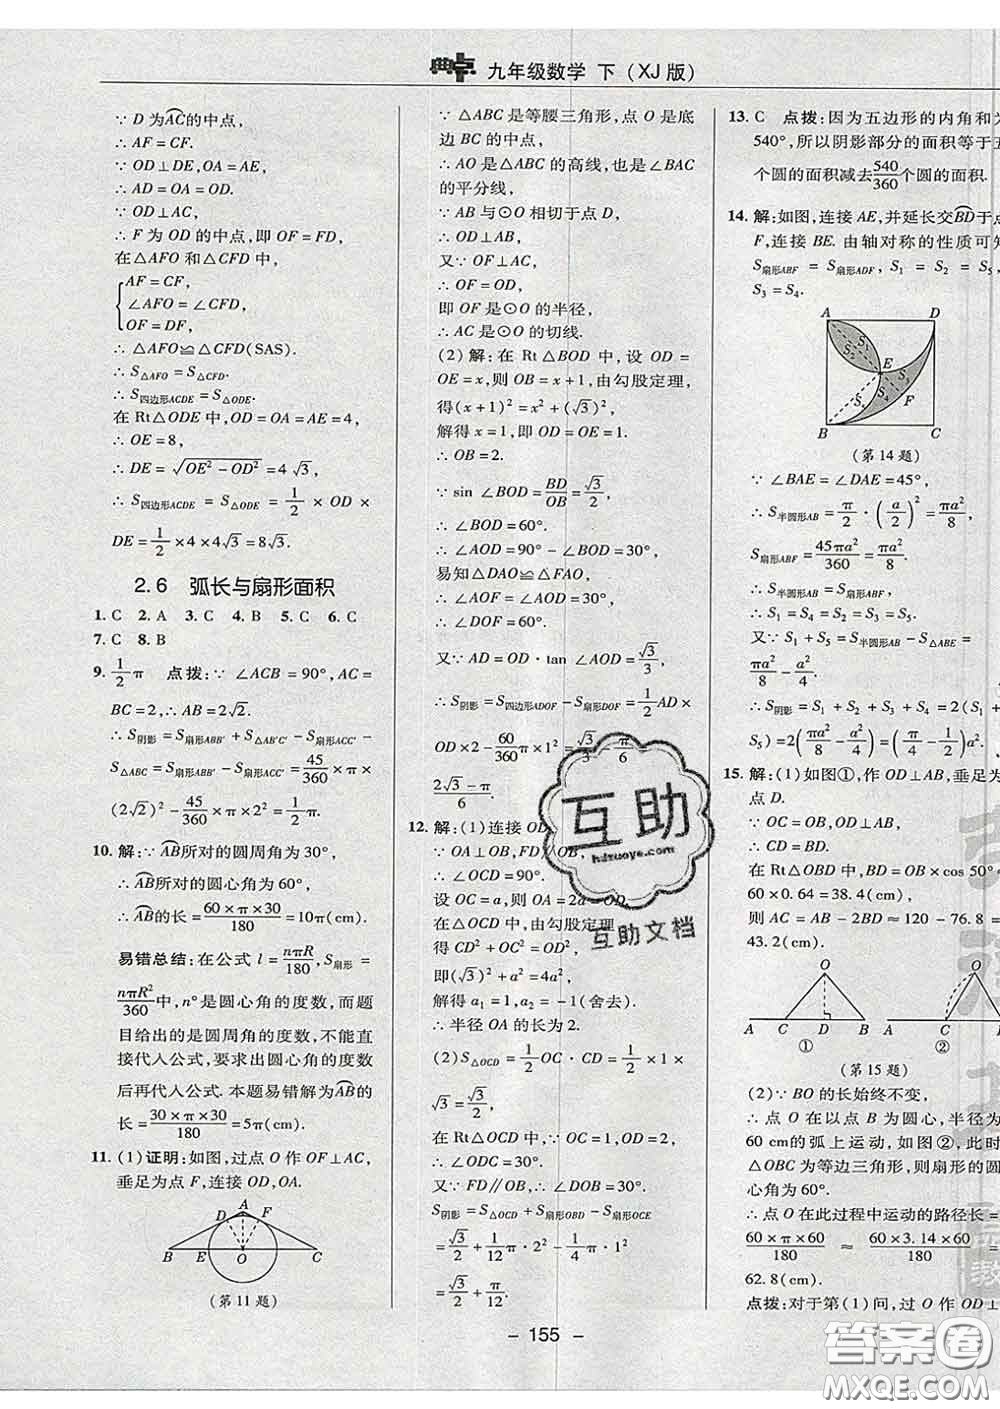 典点 九年级数学 下(XJ版)
∵ D为AC的中点,
∴ AF=CF.
∵ OD⊥DE,OA=AE,
∴ AD=OA=OD.
∵ OD⊥AC,
∴ F为OD的中点,即OF=FD,
在△AFO和△CFD中,
{AF=CF,
∠AFO=∠CFD,
OF=DF,
∴ △AFO≌△CFD(SAS).
∴ S△AFO=S△CFD.
∴ S四边形ACDE=S△ODE.
在Rt△ODE中,OD=OA=AE=4,
∴ OE=8,
∴ DE=√(OE²-OD²)=4√3,
∴ S四边形ACDE=S△ODE=1/2×OD×
DE=1/2×4×4√3=8√3.
2.6 弧长与扇形面积
1. C 2. A 3. C 4. B 5. C 6. C
7. C 8. B
9. 1/2π 点拨:∵ ∠ACB=90°,AC=
BC=2,∴ AB=2√2.
∴ S阴影=S扇形ABB′+S△AB′C′-S扇形ACC′-
S△ABC=S扇形ABB′-S扇形ACC′=45/360×π×
(2√2)²-45/360×π×2²=1/2π.
10. 解:∵ AB所对的圆周角为30°,
∴ AB所对的圆心角为60°,
∴ AB的长=60×π×30/180=10π(cm).
易错总结:在公式l=nπR/180,S扇形=
nπR²/360中,n°是圆心角的度数,而题
目给出的是圆周角的度数,不能直
接代入公式,要求出圆心角的度数
后再代入公式.本题易错解为AB的
长=30×π×30/180=5π(cm).
11. (1)证明:如图,过点O作OF⊥AC,
垂足为点F,连接OD,OA.
A
D F
B E O C
(第11题)
∵ △ABC是等腰三角形,点O是底
边BC的中点,
∴ AO是△ABC的高线,也是∠BAC
的平分线,
∵ AB与⊙O相切于点D,
∴ OD⊥AB,
又∵ OF⊥AC,
∴ OF=OD,
即OF是⊙O的半径,
∴ AC是⊙O的切线.
(2)解:在Rt△BOD中,设OD=
OE=x,则OB=x+1,由勾股定理,
得(x+1)²=x²+(√3)².
解得x=1,即OD=OF=1.
∴ OB=2.
∵ sin∠BOD=BD/OB=√3/2,
∴ ∠BOD=60°.
∴ ∠AOD=90°-∠BOD=30°,
易知△DAO≌△FAO,
∴ ∠AOF=∠AOD=30°,
∴ ∠DOF=60°.
又∵ AD=OD·tan∠AOD=√3/3,
∴ S阴影=S四边形ADOF-S扇形DOF=1/2AD×
OD×2-60/360π×1²=√3/3-π/6=
(2√3-π)/6.
12. 解:(1)连接OD
∵ OA⊥OB,FD∥OB,
∴ ∠OCD=90°.
设OC=a,则OA=2a=OD,
在△OCD中,由勾股定理
得CD²+OC²=OD²,
即(√3)²+a²=4a²,
解得a₁=1,a₂=-1(舍去).
∴ 半径OA的长为2.
(2)S△OCD=1/2OC·CD=1/2×1×
√3=√3/2,
在Rt△OCD中,OC=1,OD=2,
∴ ∠ODC=30°.
又∵ FD∥OB,∴ ∠BOD=30°.
S阴影=S△OCD+S扇形OBD-S扇形OCE
=√3/2+1/12π·2²-1/4π·1²
=√3/2+π/12.
13. C 点拨:因为五边形的内角和为
540°,所以阴影部分的面积等于五
个圆的面积减去540/360个圆的面积.
14. 解:如图,连接AE,并延长交BD于点
F,连接BE.由轴对称的性质可知
S扇形ABF=S扇形ADF,S₁=S₂=S₅,
S₃=S₄.
A D
E
F
B C
S₁ S₂ S₃ S₄ S₅
(第14题)
∵ ∠BAE=∠DAE=45°,
∴ S半圆形AB=π/2·(a/2)²=πa²/8,
S扇形ABF=45πa²/360=πa²/8,
∴ S半圆形AB=S扇形ABF.
∴ S₁=S₄=S₃=S₂.
又∵ S₁+S₅=S半圆形AB-S△ABE=
πa²/8-a²/4.
∴ S阴影=S₁+S₂+S₃+S₄=2(S₁+
S₅)=2(πa²/8-a²/4)=(π/4-1/2)a².
15. 解:(1)如图①,作OD⊥AB,垂足为
点D.
∵ OC=OB,OD⊥AB,
∴ CD=BD.
在Rt△OBD中,BD=OB×cos 50°≈
60×0.64=38.4(cm),
则AC=AB-2BD≈120-76.8=
43.2(cm).
O O
A C D B A C
① ②
(第15题)
(2)∵ BO的长始终不变,
∴ 点O在以点B为圆心,半径为
60 cm的弧上运动,如图②,此时
△OBC为等边三角形,所以弧的圆
心角为60°.
∴ 点O在此过程中运动的路径长=
60×π×60/180≈60×3.14×60/180=
62.8(cm).
点拨:对于第(1)问,过O作OD⊥
互助
hdzuoye.com
互助文档
- 155 -
答案圈
MXQE.COM